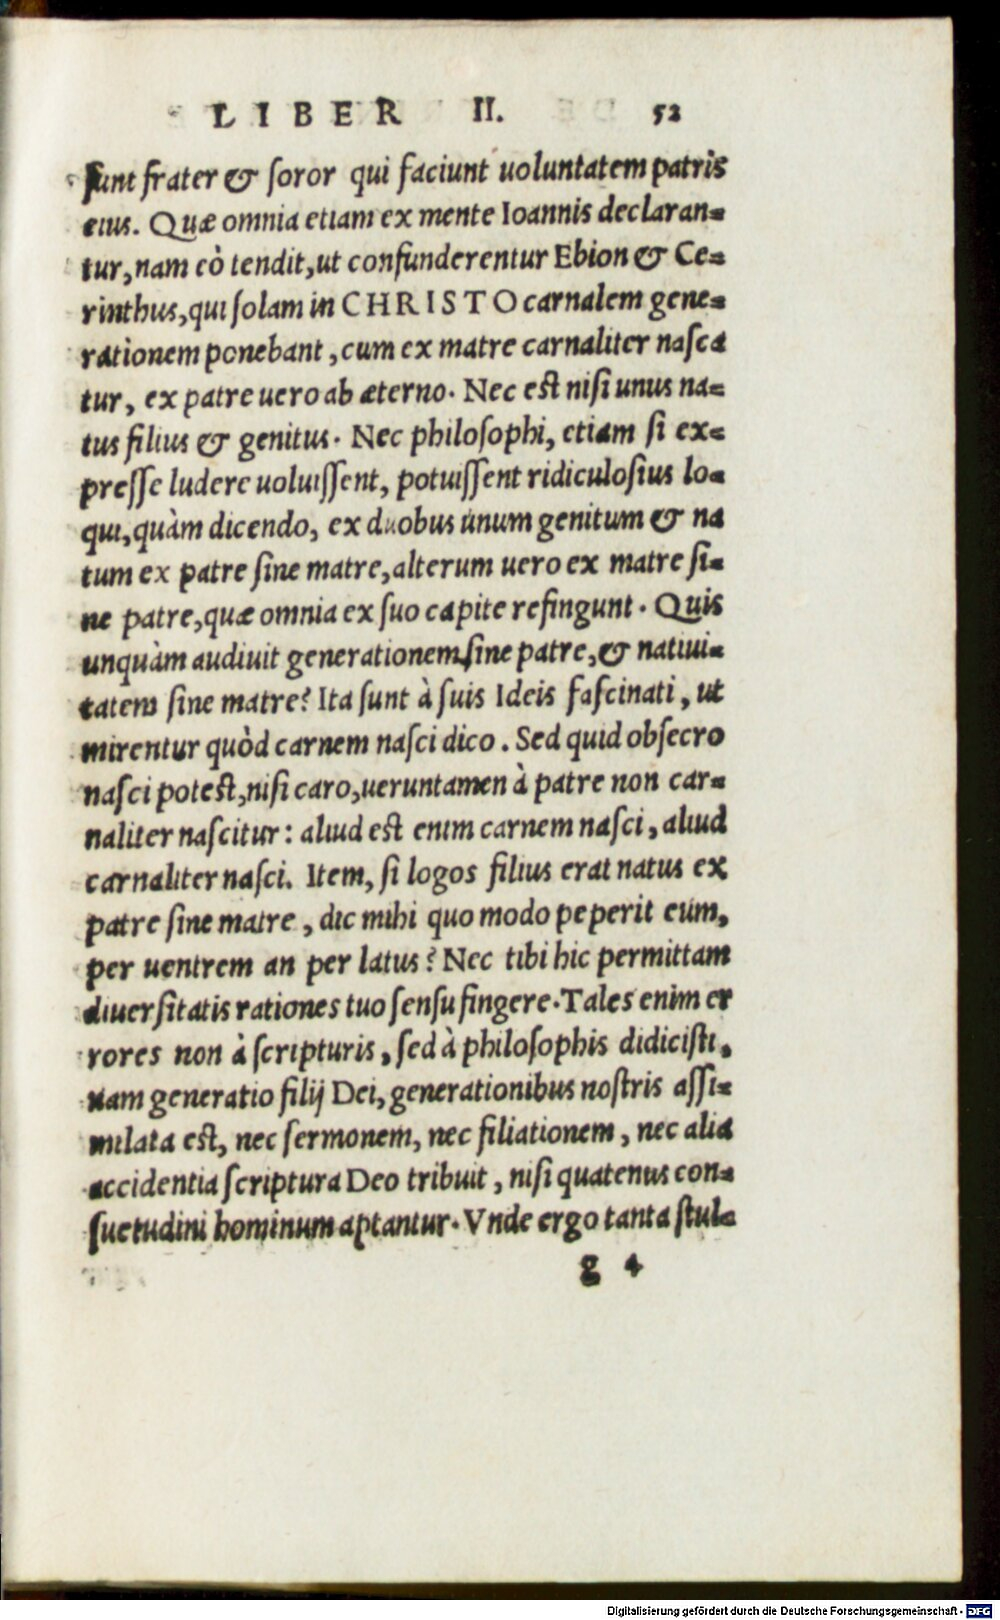 LIBER II. 52
sunt frater & soror qui faciunt uoluntatem patris
eius. Quæ omnia etiam ex mente Ioannis declaran=
tur, nam eò tendit, ut confunderentur Ebion & Ce=
rinthus, qui solam in CHRISTO carnalem gene=
rationem ponebant, cum ex matre carnaliter nasca
tur, ex patre uero ab æterno. Nec est nisi unus na=
tus filius & genitus. Nec philosophi, etiam si ex=
presse ludere uoluissent, potuissent ridiculosius lo=
qui, quàm dicendo, ex duobus unum genitum & na
tum ex patre sine matre, alterum uero ex matre si=
ne patre, quæ omnia ex suo capite refingunt. Quis
unquàm audiuit generationem sine patre, & natiui=
tatem sine matre? Ita sunt à suis Ideis fascinati, ut
mirentur quòd carnem nasci dico. Sed quid obsecro
nasci potest, nisi caro, ueruntamen à patre non car=
naliter nascitur: aliud est enim carnem nasci, aliud
carnaliter nasci. Item, si logos filius erat natus ex
patre sine matre, dic mihi quo modo peperit eum,
per uentrem an per latus? Nec tibi hic permittam
diuersitatis rationes tuo sensu fingere. Tales enim er
rores non à scripturis, sed à philosophis didicisti,
nam generatio filij Dei, generationibus nostris assi=
milata est, nec sermonem, nec filiationem, nec alia
accidentia scriptura Deo tribuit, nisi quatenus con=
suetudini hominum aptantur. Vnde ergo tanta stul=
g 4
Digitalisierung gefördert durch die Deutsche Forschungsgemeinschaft - DFG